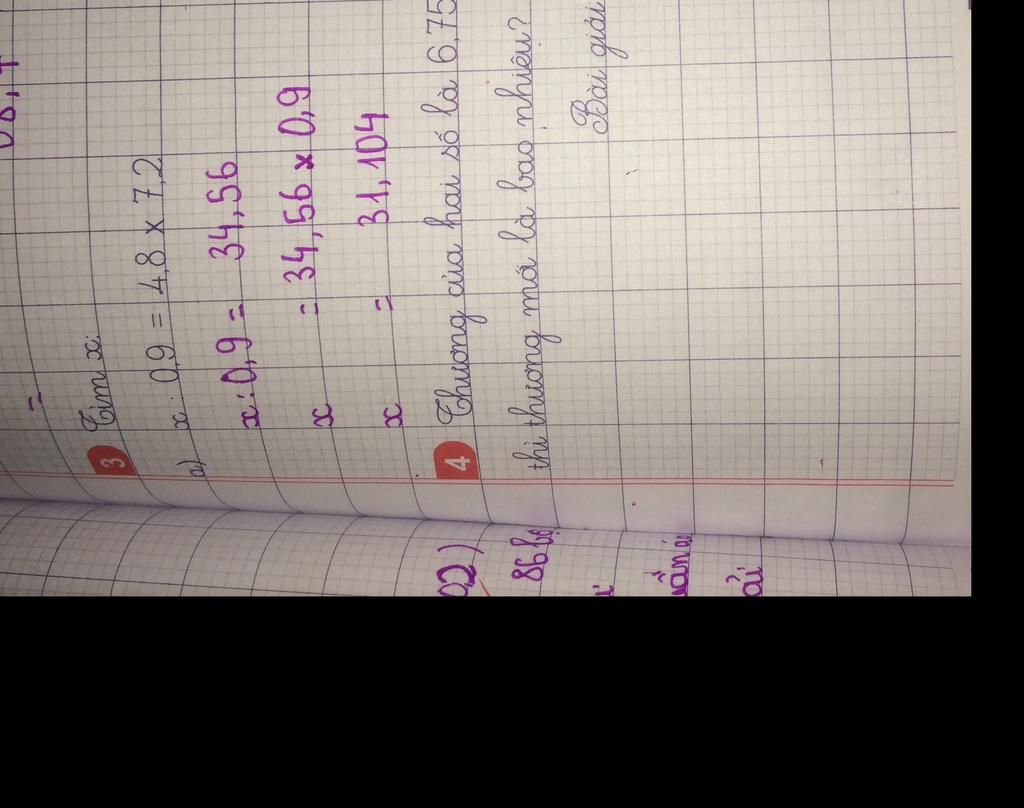 =
3 Tìm x:
a) x : 0,9 = 4,8 × 7,2
x : 0,9 = 34,56
x = 34,56 × 0,9
x = 31,104
4 Thương của hai số là 6,75
thì thương mới là bao nhiêu?
Bài giải
0,2)
86